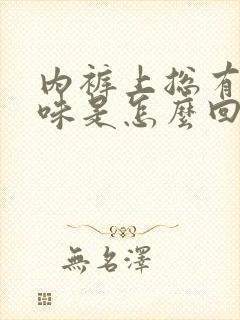 內裤上总有
味是怎麼回
無名澤